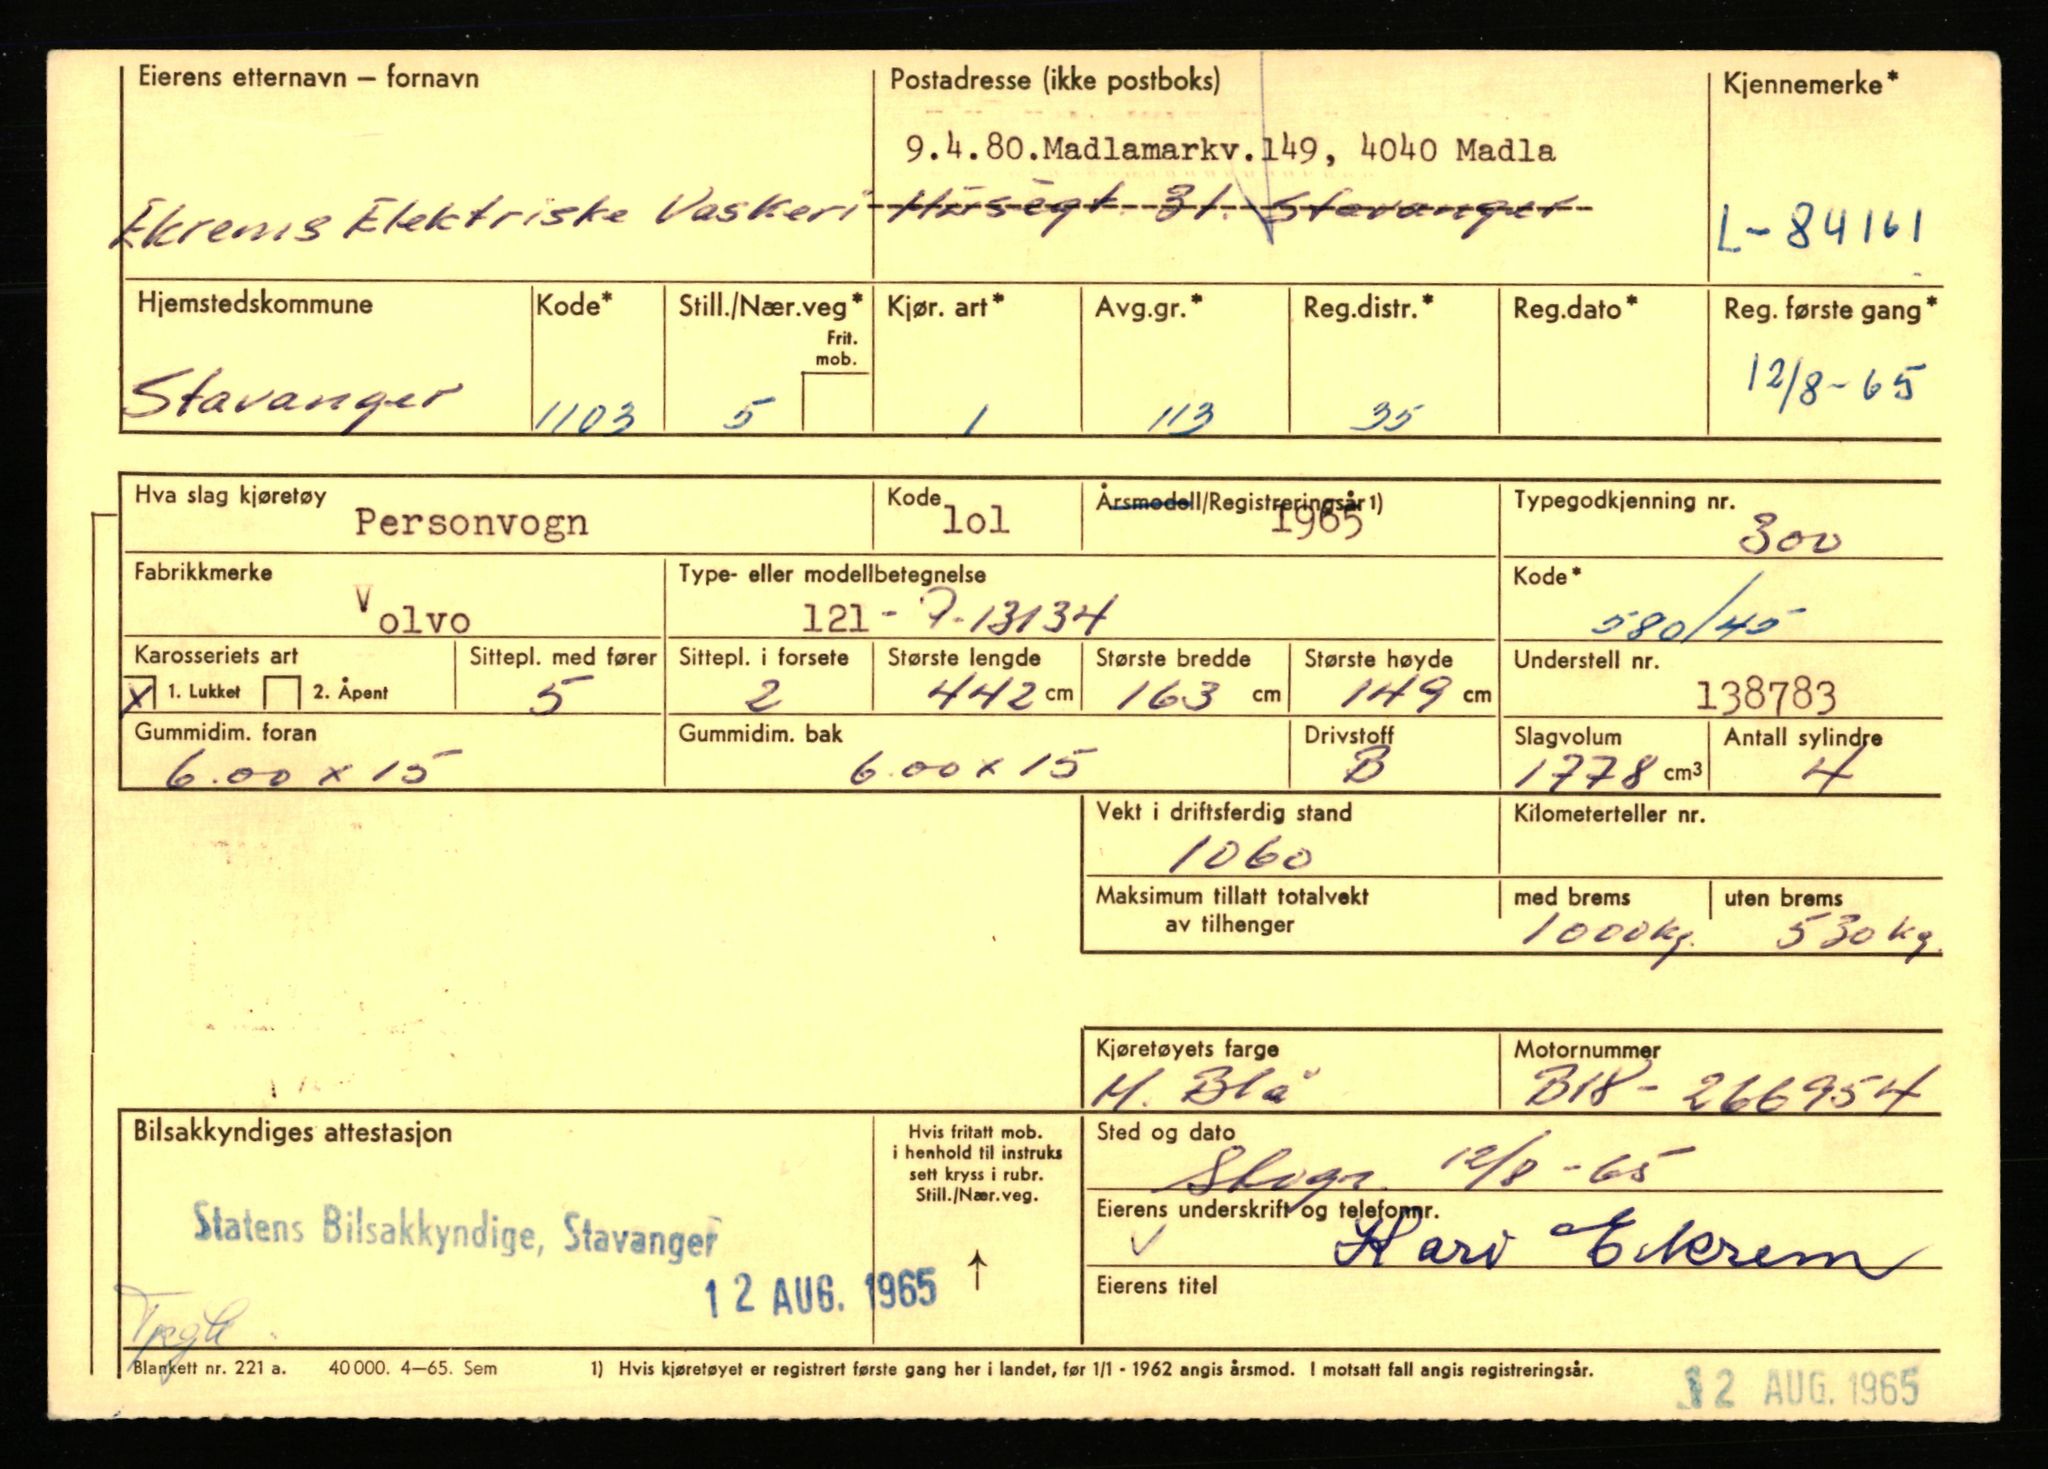 Eierens etternavn – fornavn Postadresse (ikke postboks) Kjennemerke*
9.4.80.Madlamarkv.149, 4040 Madla
Ekrems Elektriske Vaskeri 31. Stavanger L-84161
Hjemstedskommune Kode* Still./Nær.veg* Kjør. art* Avg.gr.* Reg.distr.* Reg.dato* Reg. første gang*
Frit.
mob.
Stavanger 1103 5 1 113 35 12/8-65
Hva slag kjøretøy Kode Årsmodell/Registreringsår 1) Typegodkjenning nr.
Personvogn lol 1965 300
Fabrikkmerke Type- eller modellbetegnelse Kode*
Volvo 121 - P-13134 580/45
Karosseriets art Sittepl. med fører Sittepl. i forsete Største lengde Største bredde Største høyde Understell nr.
x 1. Lukket 2. Åpent 5 2 442 cm 163 cm 149 cm 138783
Gummidim. foran Gummidim. bak Drivstoff Slagvolum Antall sylindre
6.00 x 15 6.00 x 15 B 1778 cm3 4
Vekt i driftsferdig stand Kilometerteller nr.
1060
Maksimum tillatt totalvekt med brems uten brems
av tilhenger 1000kg. 530 kg.
Kjøretøyets farge Motornummer
M. Blå B18 - 266954
Bilsakkyndiges attestasjon Hvis fritatt mob. Sted og dato
i henhold til instruks
sett kryss i rubr.
Still./Nær.veg.
12/8-65
Statens Bilsakkyndige, Stavanger
Eierens underskrift og telefonnr.
Kari Ekrem
12 AUG. 1965 ↑ Eierens titel
Blankett nr. 221 a. 40 000. 4–65. Sem 1) Hvis kjøretøyet er registrert første gang her i landet, før 1/1 - 1962 angis årsmod. I motsatt fall angis registreringsår.
12 AUG. 1965